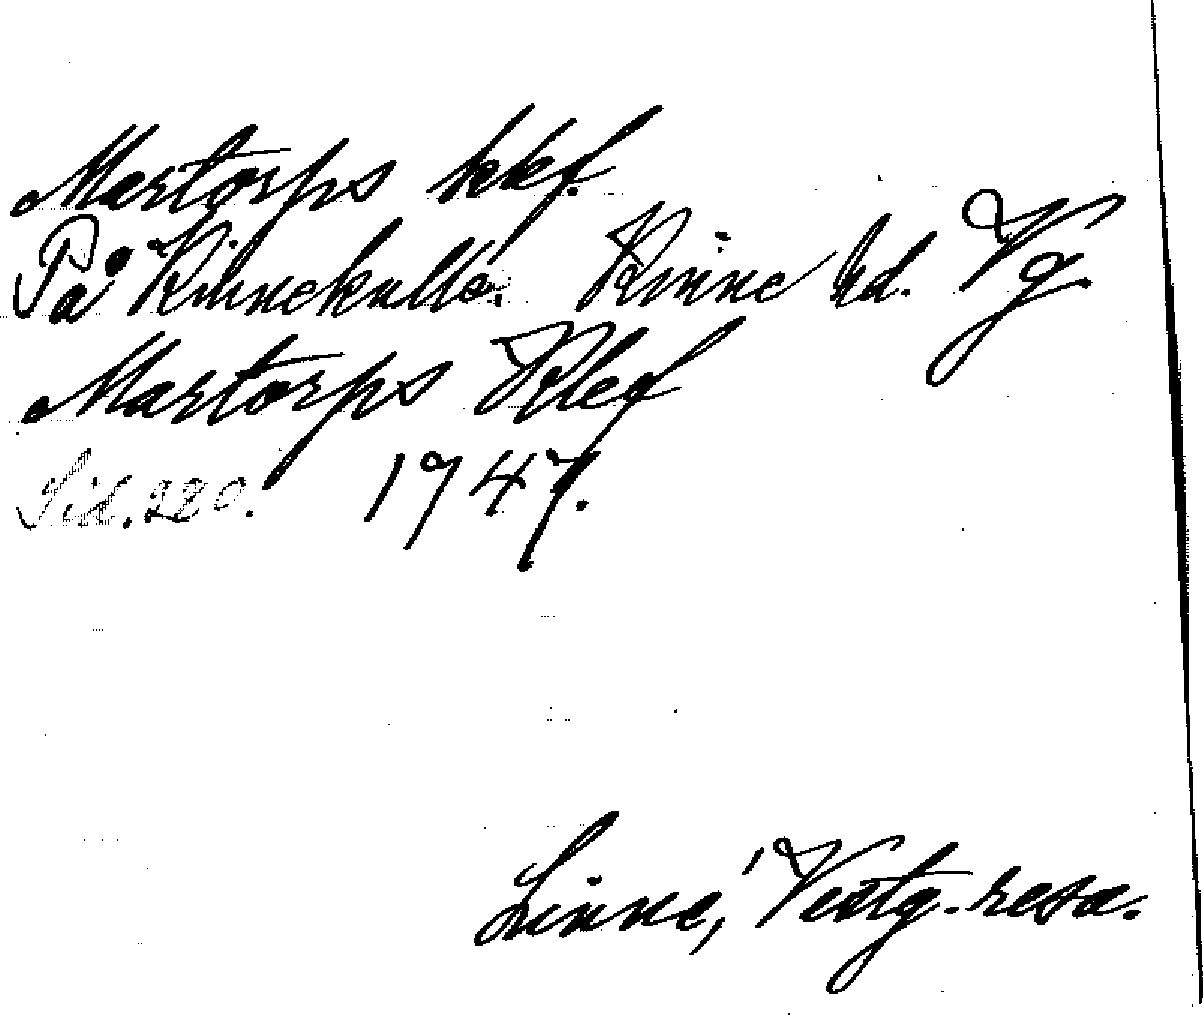 Martorps klef.
På Kinnekulle. Kinne hd. Vg.
Martorps Klef
Sid. 220. 1747.
Linné, Vestg. resa.